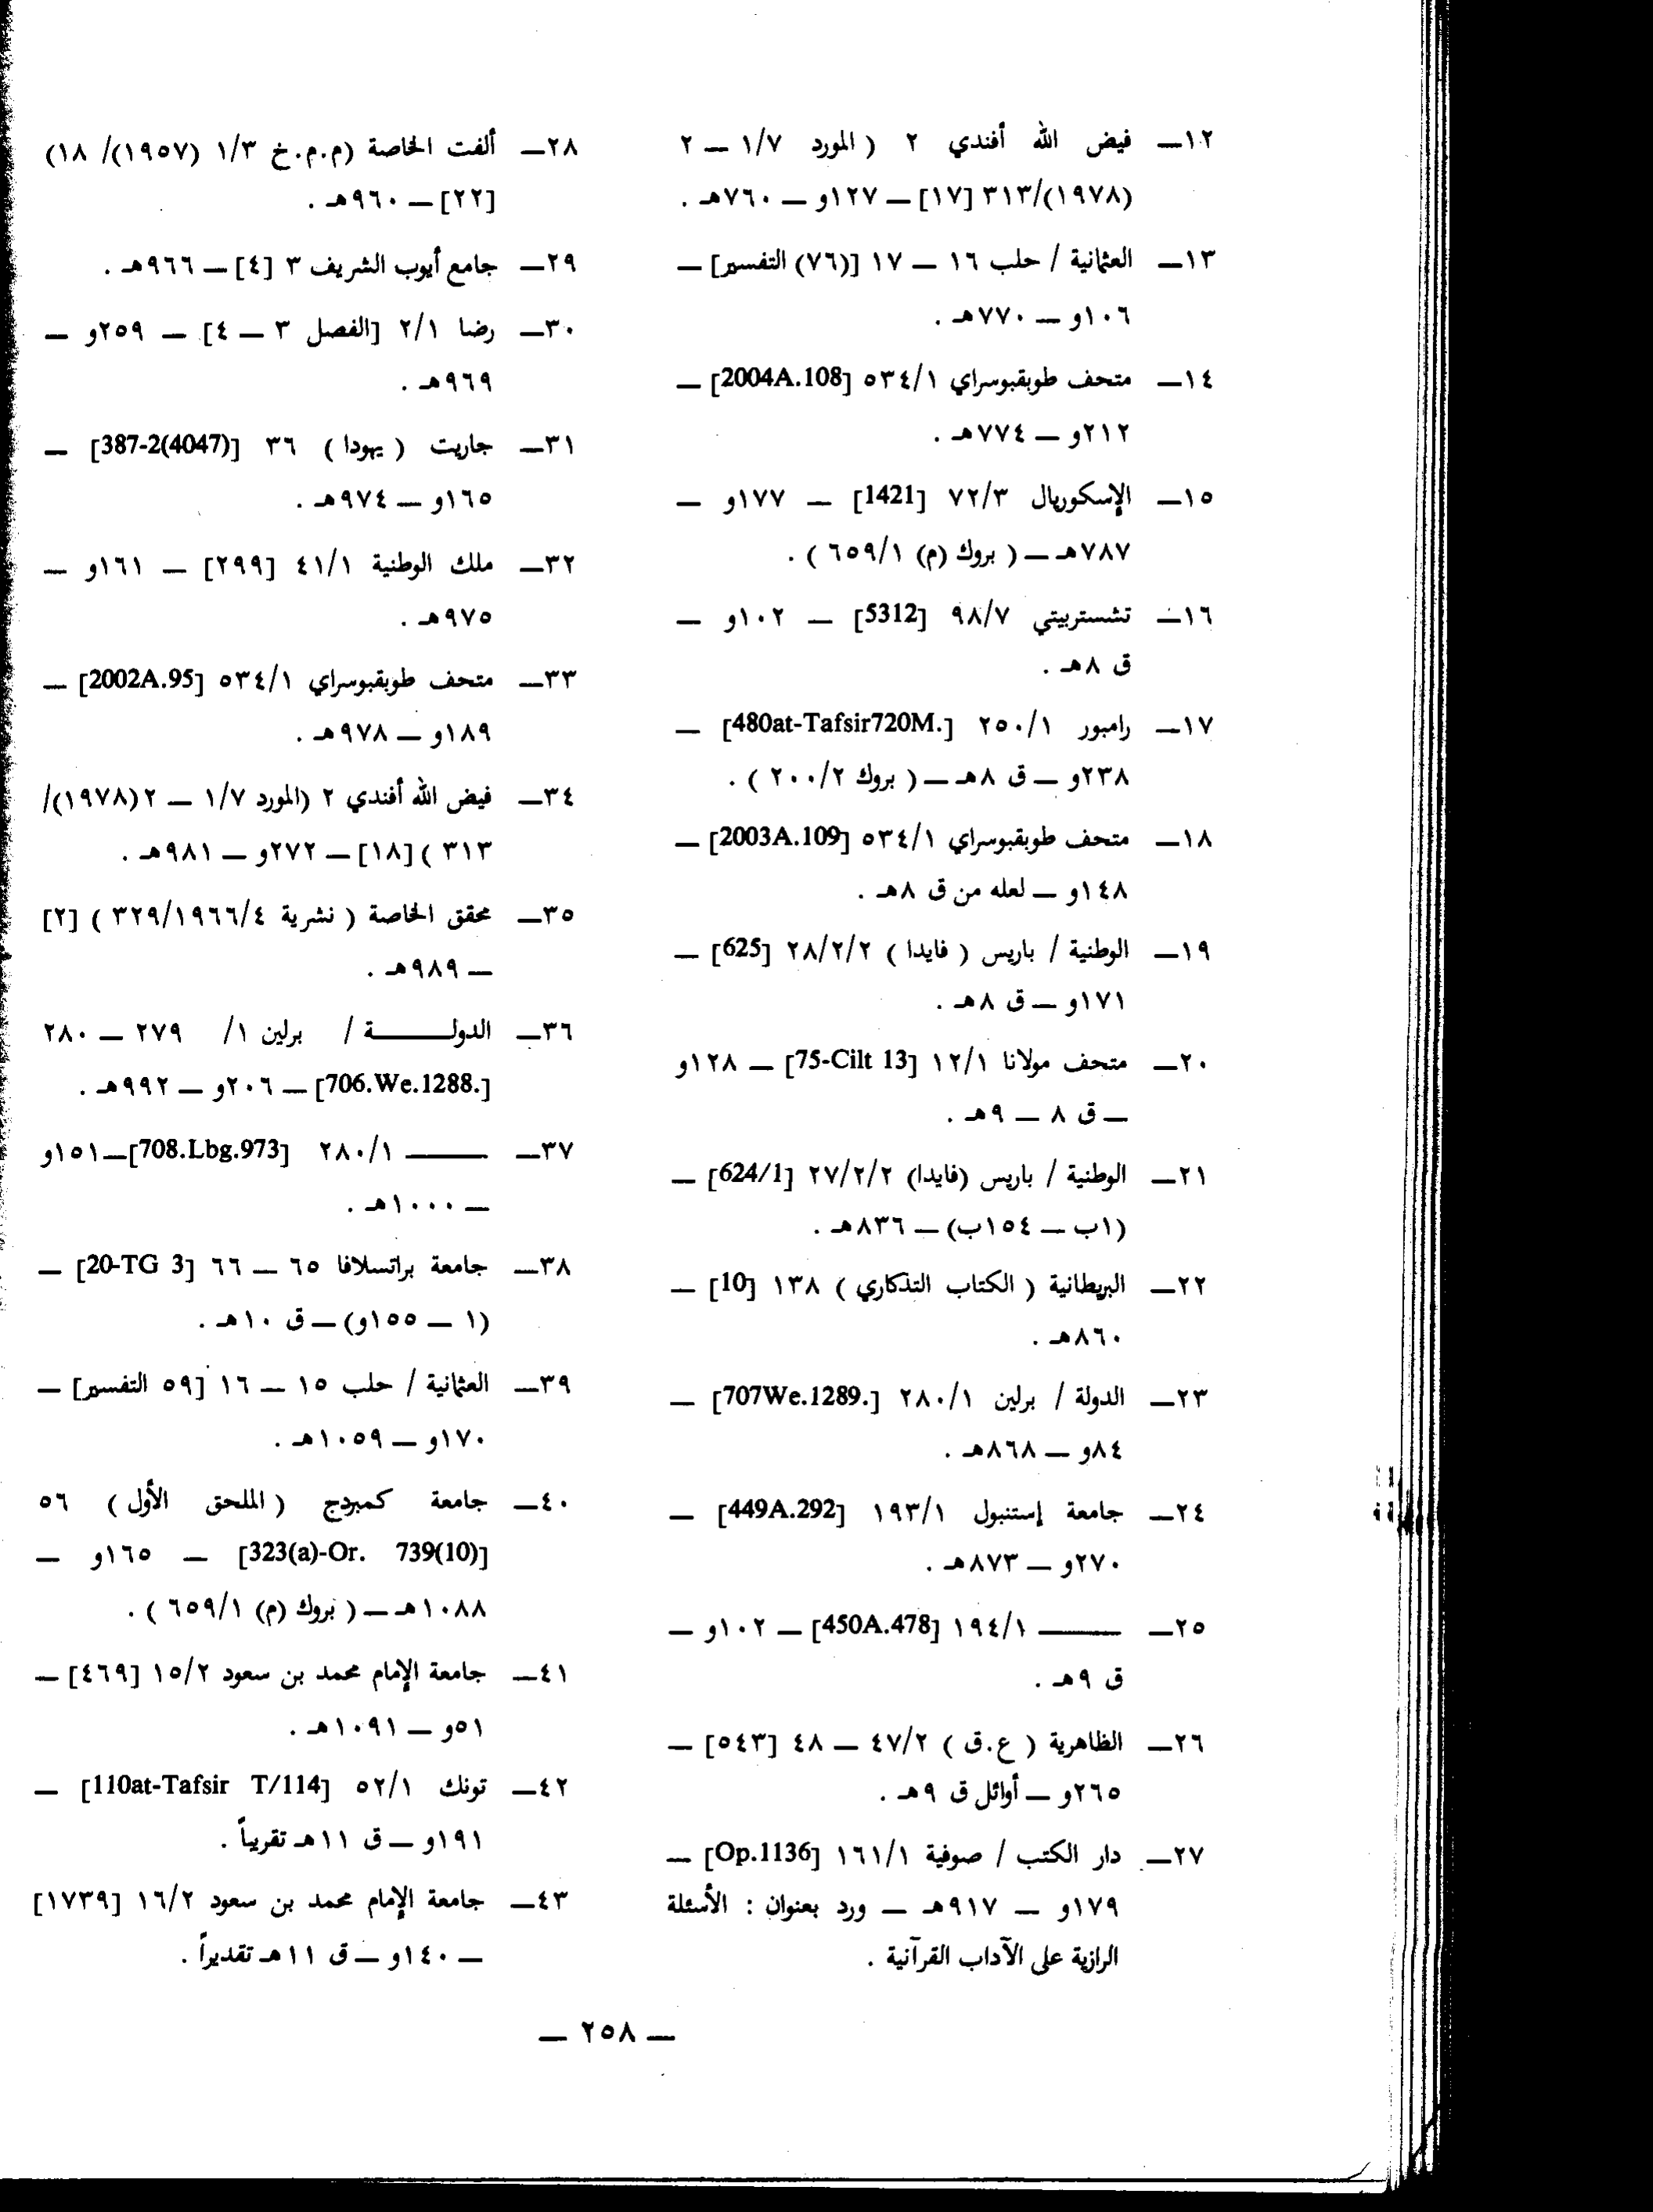 ١٢ـ فيض الله أفندي ٢ ( المورد ١/٧ — ٢
(١٩٧٨)/٣١٣ [١٧] — ١٢٧و — ٧٦٠هـ .
١٣ـ العثمانية / حلب ١٦ — ١٧ [(٧٦) التفسير] —
١٠٦و — ٧٧٠هـ .
١٤ـ متحف طوبقبوسراي ٥٣٤/١ [2004A.108] —
٢١٢و — ٧٧٤هـ .
١٥ـ الإسكوريال ٧٢/٣ [1421] — ١٧٧و —
٧٨٧هـ — ( بروك (م) ٦٥٩/١ ) .
١٦ـ تشستربيتي ٩٨/٧ [5312] — ١٠٢و —
ق ٨هـ .
١٧ـ رامبور ٢٥٠/١ [480at-Tafsir720M.] —
٢٣٨و — ق ٨هـ — ( بروك ٢٠٠/٢ ) .
١٨ـ متحف طوبقبوسراي ٥٣٤/١ [2003A.109] —
١٤٨و — لعله من ق ٨هـ .
١٩ـ الوطنية / باريس ( فايدا ) ٢٨/٢/٢ [625] —
١٧١و — ق ٨هـ .
٢٠ـ متحف مولانا ١٢/١ [75-Cilt 13] — ١٢٨و
— ق ٨ — ٩هـ .
٢١ـ الوطنية / باريس (فايدا) ٢٧/٢/٢ [624/1] —
(١ب — ١٥٤ب) — ٨٣٦هـ .
٢٢ـ البريطانية ( الكتاب التذكاري ) ١٣٨ [10] —
٨٦٠هـ .
٢٣ـ الدولة / برلين ٢٨٠/١ [707We.1289.] —
٨٤و — ٨٦٨هـ .
٢٤ـ جامعة إستنبول ١٩٣/١ [449A.292] —
٢٧٠و — ٨٧٣هـ .
٢٥ـ ——— ١٩٤/١ [450A.478] — ١٠٢و —
ق ٩هـ .
٢٦ـ الظاهرية ( ع.ق ) ٤٧/٢ — ٤٨ [٥٤٣] —
٢٦٥و — أوائل ق ٩هـ .
٢٧ـ دار الكتب / صوفية ١٦١/١ [Op.1136] —
١٧٩و — ٩١٧هـ — ورد بعنوان : الأسئلة
الرازية على الآداب القرآنية .
٢٨ـ ألفت الخاصة (م.م.خ ١/٣ (١٩٥٧)/ ١٨)
[٢٢] — ٩٦٠هـ .
٢٩ـ جامع أيوب الشريف ٣ [٤] — ٩٦٦هـ .
٣٠ـ رضا ٢/١ [الفصل ٣ — ٤] — ٢٥٩و —
٩٦٩هـ .
٣١ـ جاريت ( يهودا ) ٣٦ [387-2(4047)] —
١٦٥و — ٩٧٤هـ .
٣٢ـ ملك الوطنية ٤١/١ [٢٩٩] — ١٦١و —
٩٧٥هـ .
٣٣ـ متحف طوبقبوسراي ٥٣٤/١ [2002A.95] —
١٨٩و — ٩٧٨هـ .
٣٤ـ فيض الله أفندي ٢ (المورد ١/٧ — ٢ (١٩٧٨)/
٣١٣ ) [١٨] — ٢٧٢و — ٩٨١هـ .
٣٥ـ محقق الخاصة ( نشرية ٣٢٩/١٩٦٦/٤ ) [٢]
— ٩٨٩هـ .
٣٦ـ الدولـــــة / برلين ١/ ٢٧٩ — ٢٨٠
[706.We.1288.] — ٢٠٦و — ٩٩٢هـ .
٣٧ـ ——— ٢٨٠/١ [708.Lbg.973] — ١٥١و
— ١٠٠٠هـ .
٣٨ـ جامعة براتسلافا ٦٥ — ٦٦ [20-TG 3] —
(١ — ١٥٥و) — ق ١٠هـ .
٣٩ـ العثمانية / حلب ١٥ — ١٦ [٥٩ التفسير] —
١٧٠و — ١٠٥٩هـ .
٤٠ـ جامعة كمبردج ( الملحق الأول ) ٥٦
[323(a)-Or. 739(10)] — ١٦٥و —
١٠٨٨هـ — ( بروك (م) ٦٥٩/١ ) .
٤١ـ جامعة الإمام محمد بن سعود ١٥/٢ [٤٦٩] —
٥١و — ١٠٩١هـ .
٤٢ـ تونك ٥٢/١ [110at-Tafsir T/114] —
١٩١و — ق ١١هـ تقريباً .
٤٣ـ جامعة الإمام محمد بن سعود ١٦/٢ [١٧٣٩]
— ١٤٠و — ق ١١هـ تقديراً .
— ٢٥٨ —